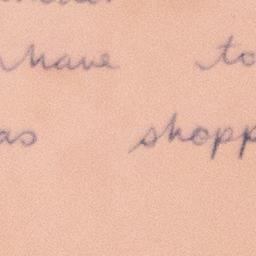 have to
as shopp